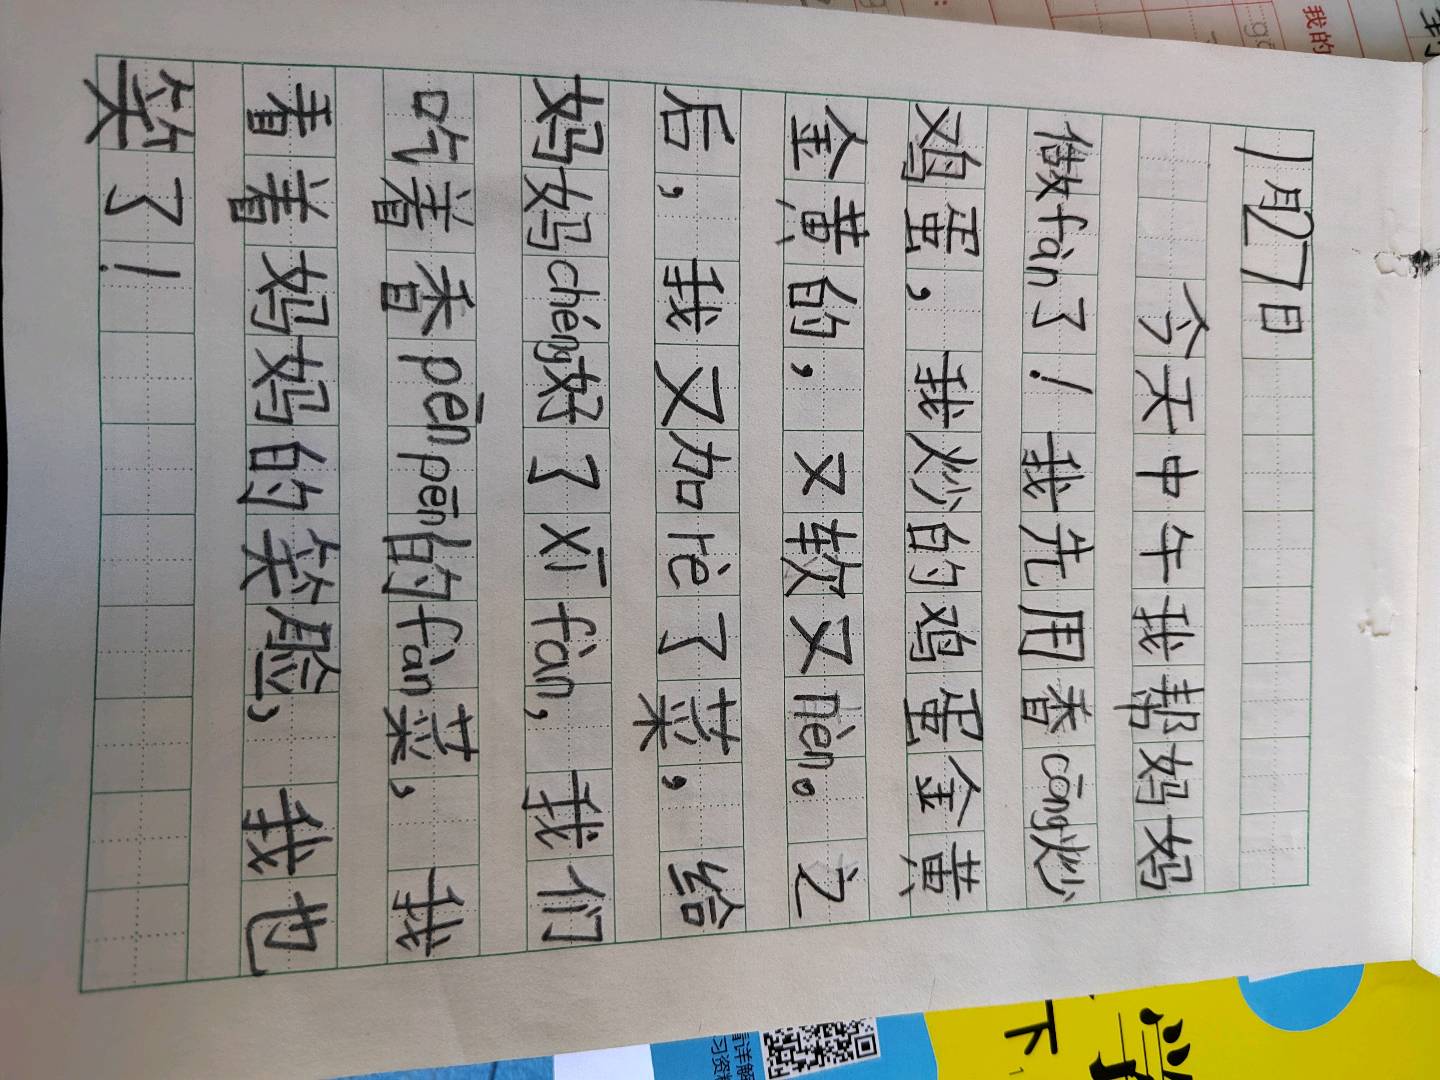 1月27日
今天中午我帮妈妈
做fàn了！我先用香cōng炒
鸡蛋，我炒的鸡蛋金黄
金黄的，又软又nèn。之
后，我又加rè了菜，给
妈妈chéng好了xī fàn，我们
吃着香pēnpēn的fàn菜，我
看着妈妈的笑脸，我也
笑了！
我的
下